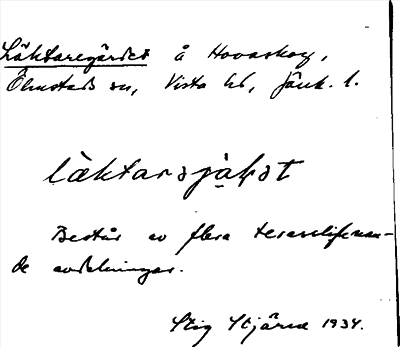 Läktaregärdet å Hovaskog,
Ölmstads sn, Vista hd, Jönk. l.
läktarsjạḥət
Består av flera terassliknan-
de avdelningar.
Stig Stjärne 1934.